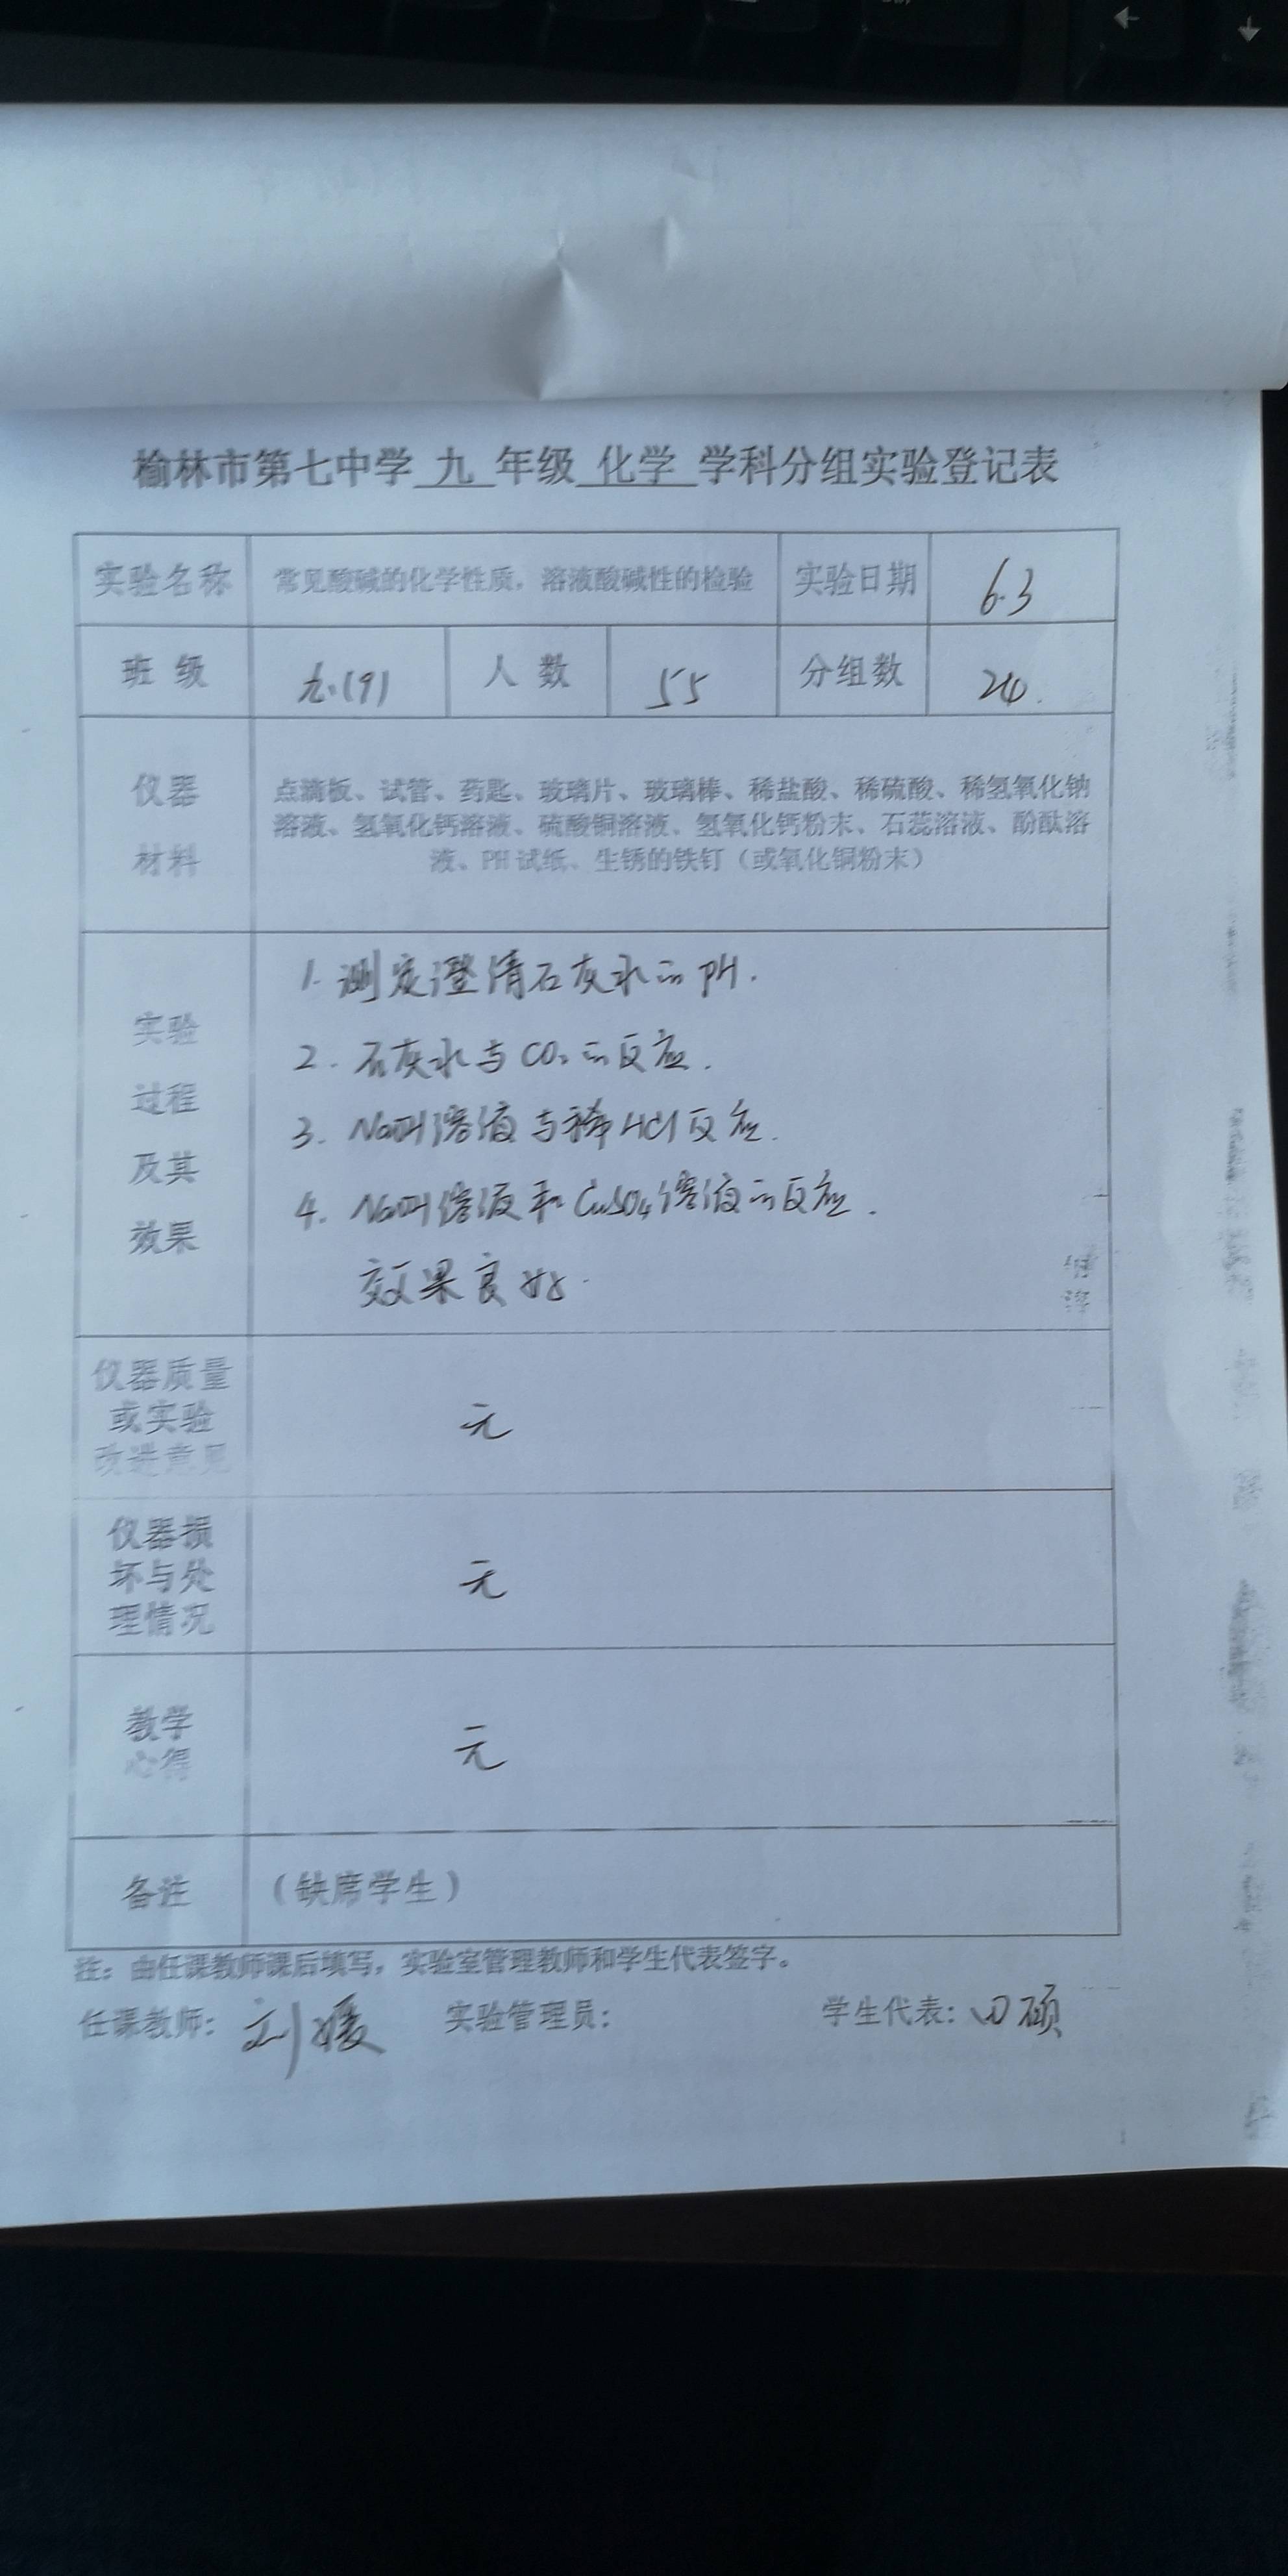 榆林市第七中学 九 年级 化学 学科分组实验登记表
实验名称 常见酸碱的化学性质，溶液酸碱性的检验 实验日期 6.3
班 级 九.(9) 人 数 55 分组数 24.
仪器
材料
点滴板、试管、药匙、玻璃片、玻璃棒、稀盐酸、稀硫酸、稀氢氧化钠
溶液、氢氧化钙溶液、硫酸铜溶液、氢氧化钙粉末、石蕊溶液、酚酞溶
液、PH 试纸、生锈的铁钉（或氧化铜粉末）
实验
过程
及其
效果
1. 测定澄清石灰水的 pH.
2. 石灰水与CO₂的反应.
3. NaOH溶液与稀HCl反应.
4. NaOH溶液和CuSO₄溶液的反应.
效果良好.
仪器质量
或实验
改进意见
无
仪器损
坏与处
理情况
无
教学
心得
无
备注 （缺席学生）
注：由任课教师课后填写，实验室管理教师和学生代表签字。
任课教师：刘媛 实验管理员： 学生代表：田硕